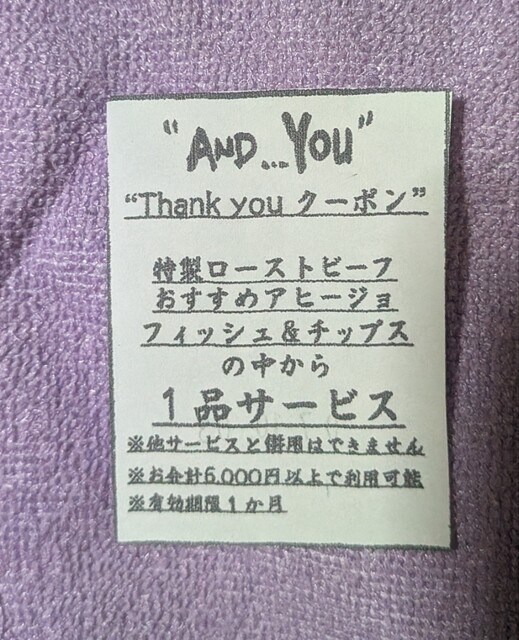 "AND...YOU"
“Thank you クーポン”
特製ローストビーフ
おすすめアヒージョ
フィッシュ&チップス
の中から
１品サービス
※他サービスと併用はできません
※お会計6,000円以上で利用可能
※有効期限１か月